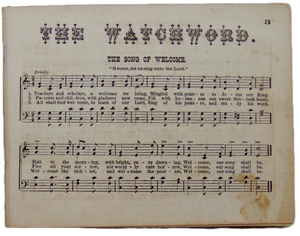 THE WATCHWORD.
THE SONG OF WELCOME.
"O come, let us sing unto the Lord."
Briskly.
1. Teachers and scholars, a welcome we bring, Mingled with praises to Jesus our King.
2. Parents and children, with gladness now Fill with hosannas our sweet Sabbath home.
3. All shall find welcome, to learn of our Lord, Sing of his praises, and his word.
Hail to the morning, with bright, rosy dawning, Welcome, our song shall be,
Flee all your sorrow, nor worldly care borrow, Welcome, our song shall be,
Welcome the richest, and welcome the poorest, Welcome, our song shall be,